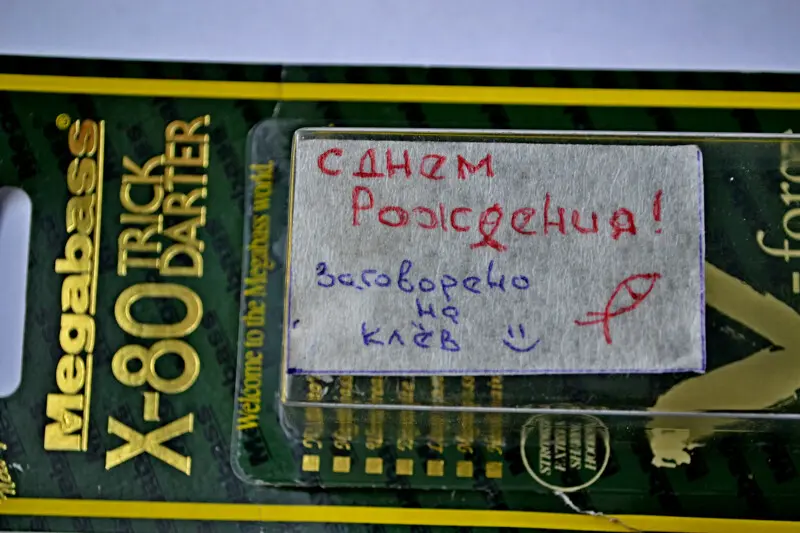 Megabass
X-80 TRICK
DARTER
Welcome to the Megabass world.
С ДНЕМ
РОЖДЕНИЯ!
Заговорено
на
клёв
-force